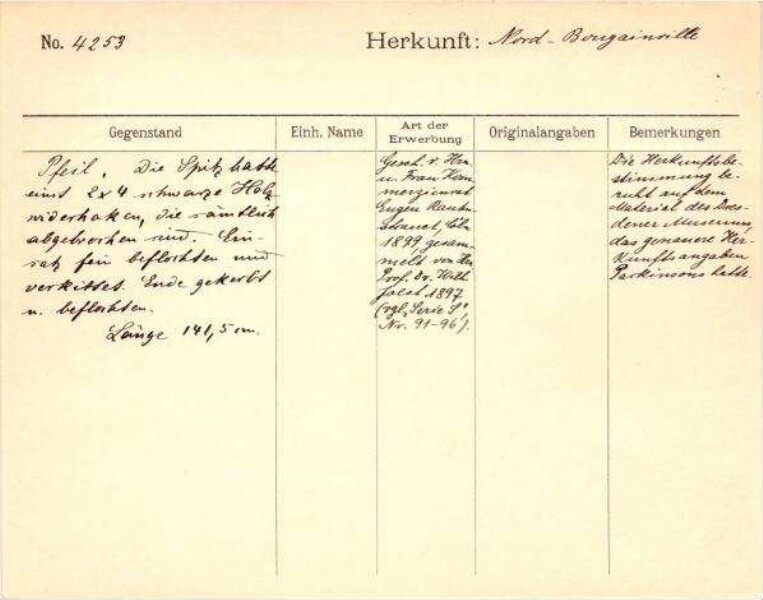 No. 4253
Herkunft: Nord-Bougainville
Gegenstand
Einh. Name
Art der Erwerbung
Originalangaben
Bemerkungen
Pfeil. Die Spitz hatte
einst 2x4 schwarze Holz
widerhaken, die sämtlich
abgebrochen sind. Ein-
satz fein beflochten und
verkittet. Ende gekerbt
u. beflochten.
Länge 141,5 cm.
Gesch. v. Hrn.
u. Frau Kom
merzienrat
Eugen Rauten
strauch, Cöln
1899, gesam-
melt von Hn
Prof. Dr. Wilh
Joest 1897
(vgl. "Serie S",
Nr. 91-96).
Die Herkunftsbe-
stimmung be-
ruht auf dem
Material des Dres-
dener Museums,
das genauere Her-
kunftsangaben
Parkinsons hatte.